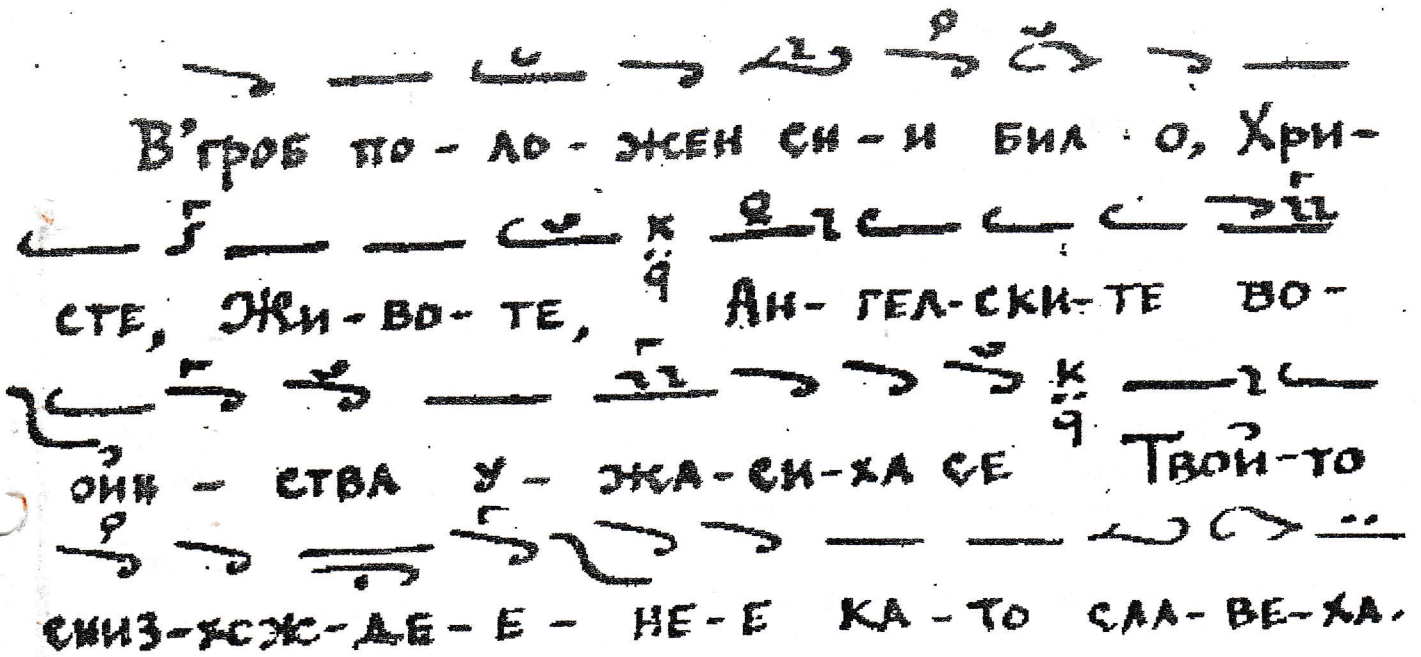 В'гроб по-ло-жен си-и бил о, Хри-
сте, Жи-во-те, Ан-гел-ски-те во-
ойн-ства у-жа-си-ха се Твой-то
сниз-хож-де-е-не-е ка-то сла-ве-ха.